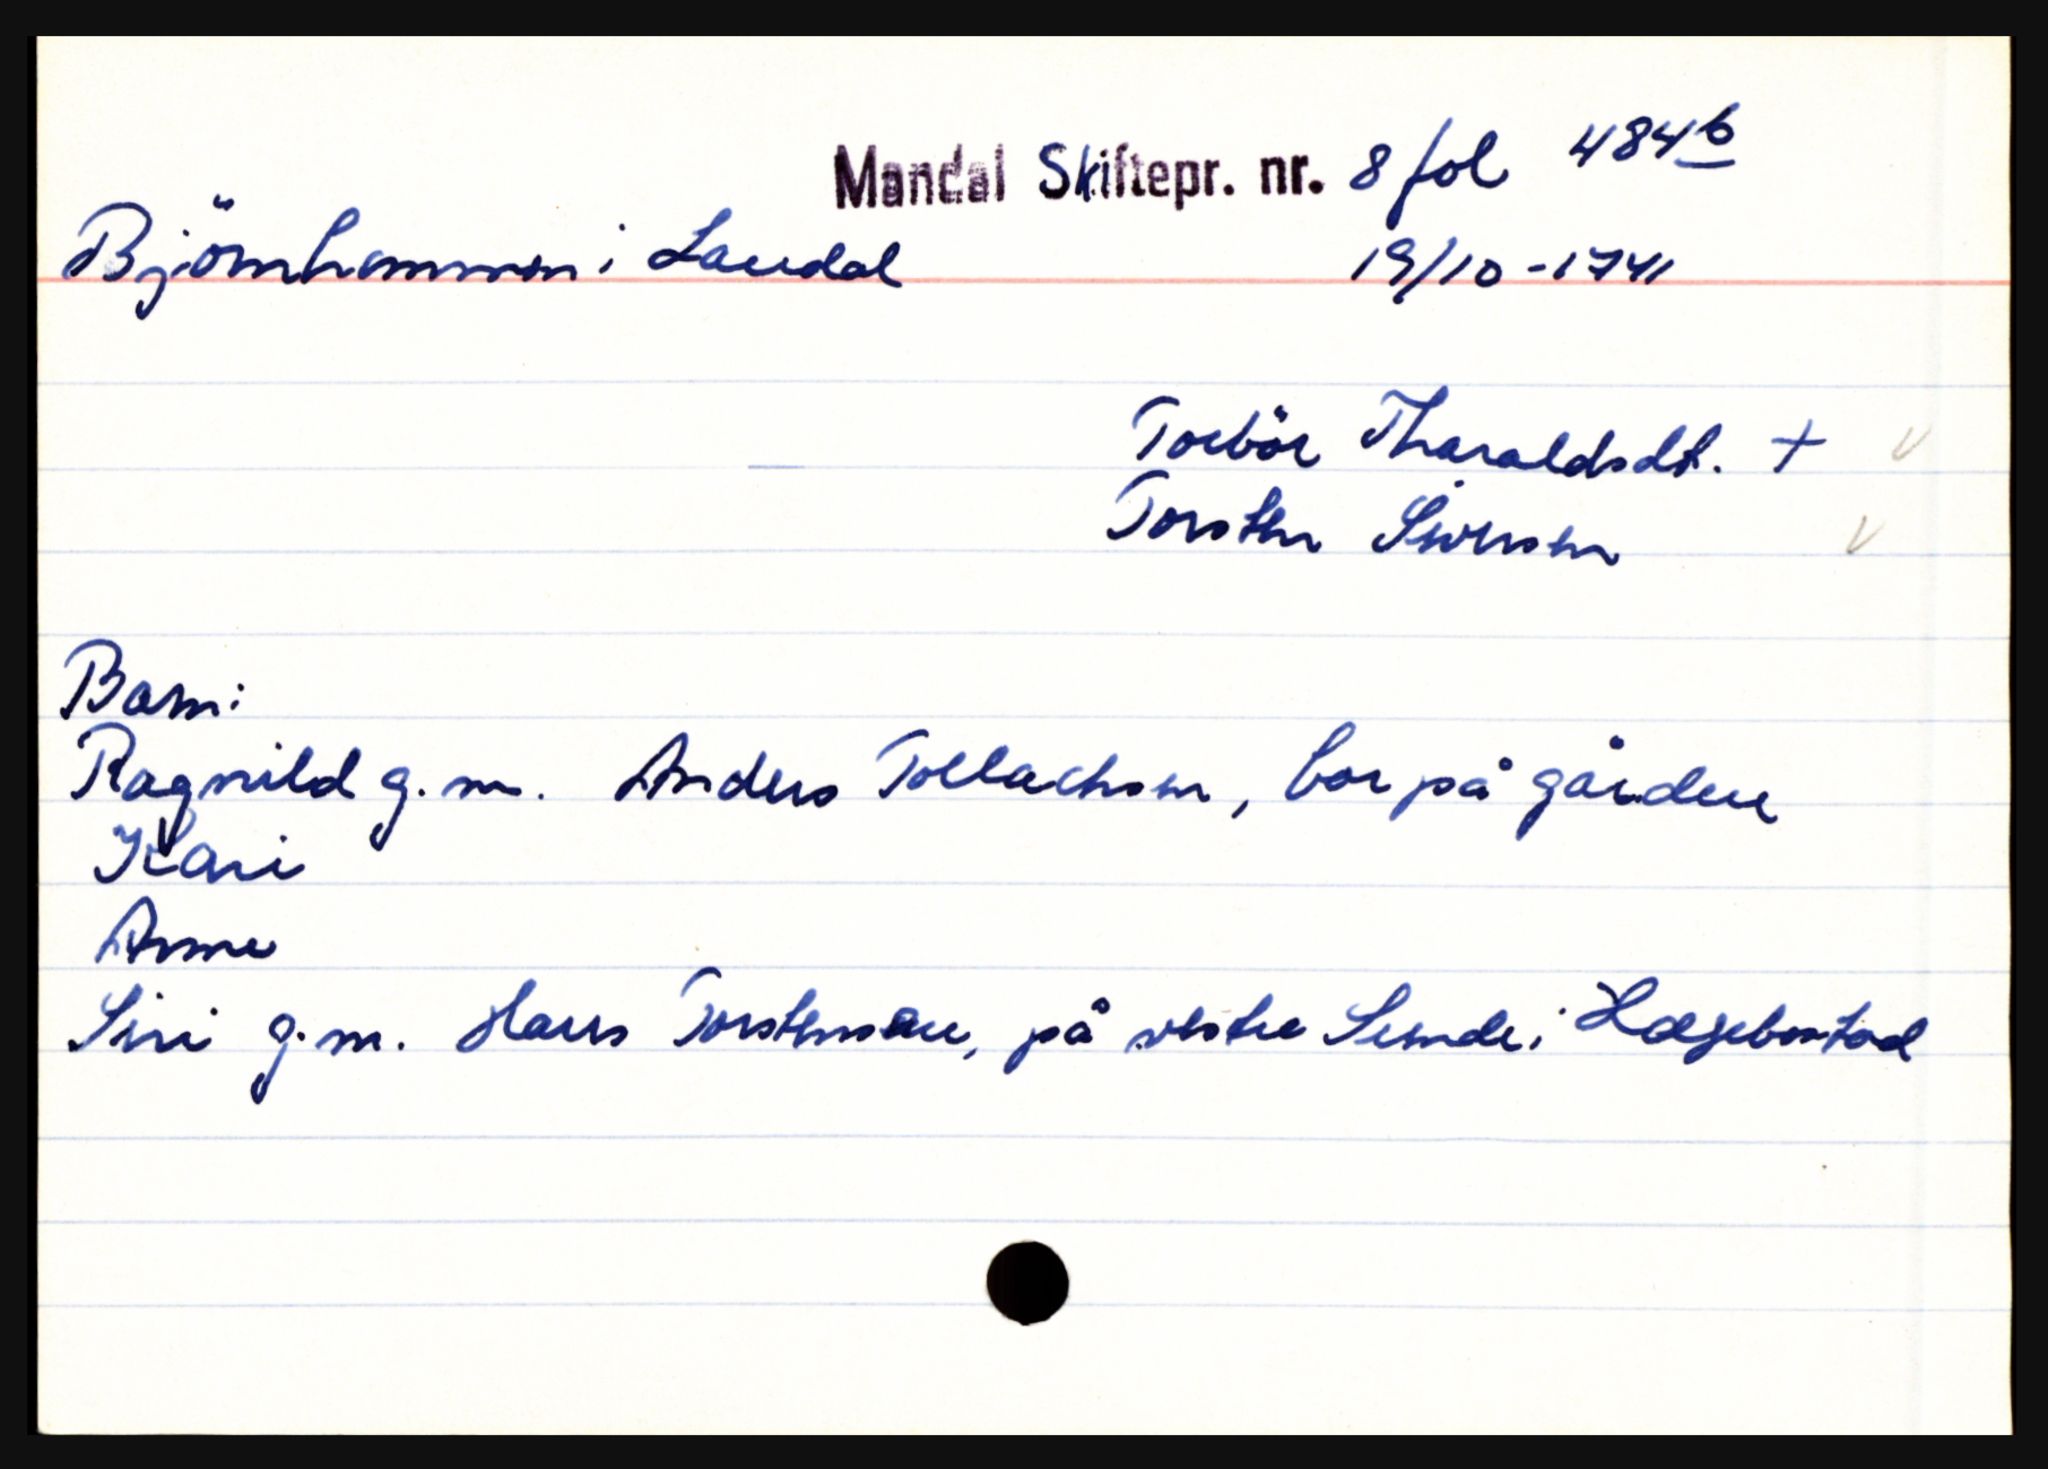 Mandal Skiftepr. nr. 8 fol 484b
Björnhommen i Laudal 19/10-1741
Torbör Tharaldsdt. +
Torsten Siversen
Barn:
Ragnild g.m. Anders Tollachsen, bor på gården
Kari
Anne
Siri g.m. Hans Torstensen, på vestre Sunde i Hægebostad